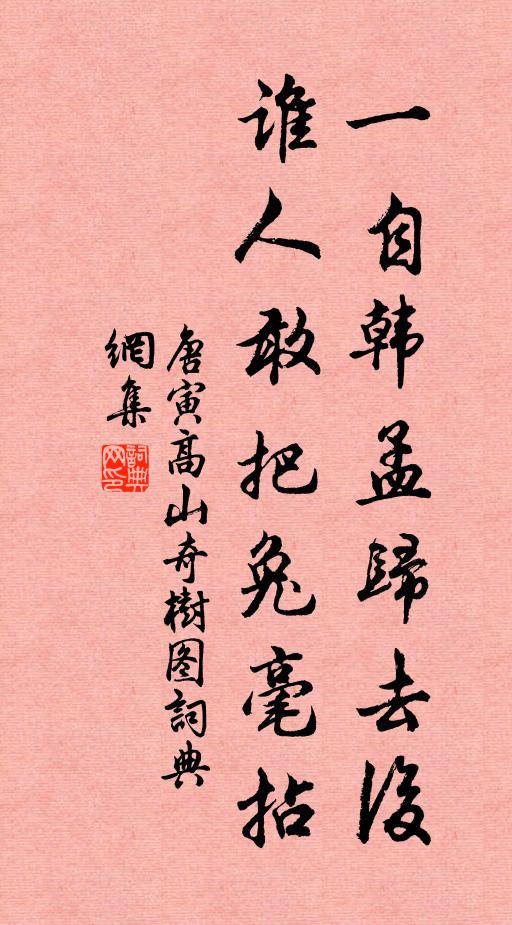 一自韩孟歸去後
谁人敢把兔毫拈
唐寅高山奇樹图詞典
網集
詞典网印